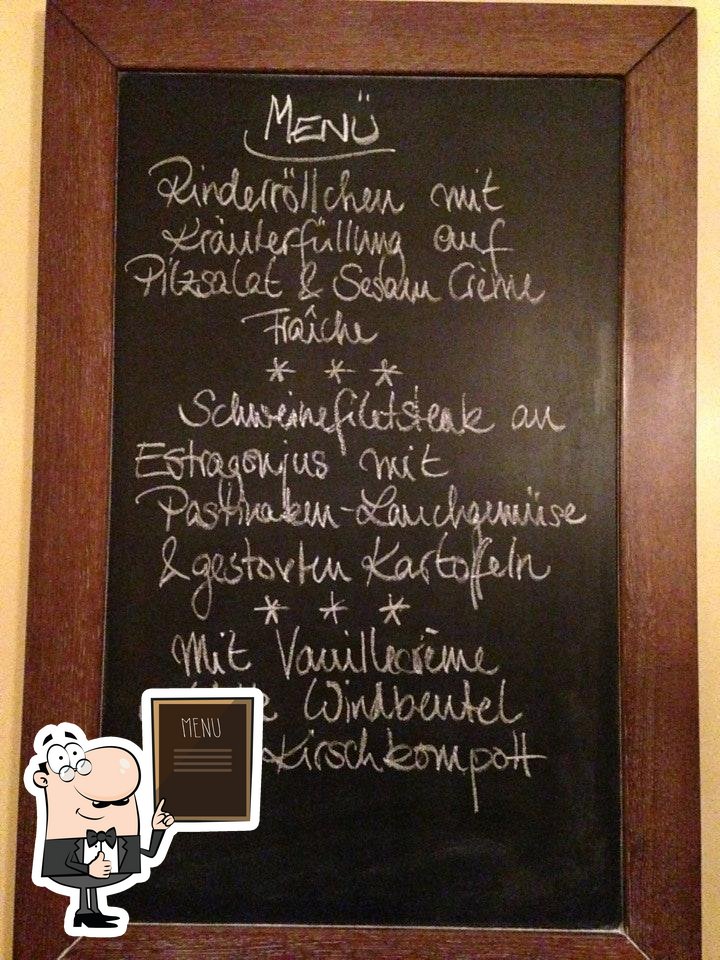 MENÜ
Rinderröllchen mit
Kräuterfüllung auf
Pilzsalat & Sesam Crème
Fraîche
* * *
Schweinefiletsteak an
Estragonjus mit
Pastinaken-Lauchgemüse
& gestovten Kartoffeln
* * *
Mit Vanillecrème
Windbeutel
Kirschkompott
MENU